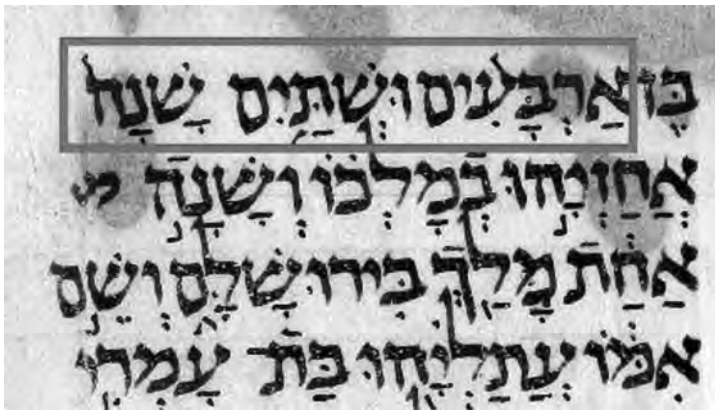 בֶּן־אַרְבָּעִים וּשְׁתַּיִם שָׁנָה
אֲחַזְיָהוּ בְמָלְכוֹ וְשָׁנָה
אַחַת מָלַךְ בִּירוּשָׁלִָם וְשֵׁם
אִמּוֹ עֲתַלְיָהוּ בַּת־עָמְרִי